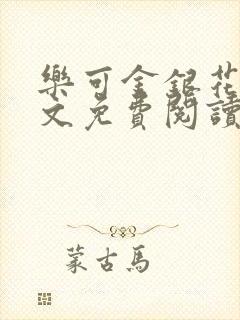 樂可金銀花
文免費閱讀
蒙古馬